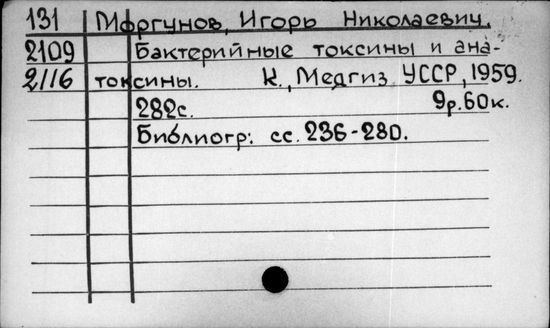 131 Моргунов, Игорь Николаевич.
2109 Бактерийные токсины и ана-
2116 токсины. К., Медгиз УССР, 1959.
282с. 9р.60к.
Библиогр: сс. 236-280.